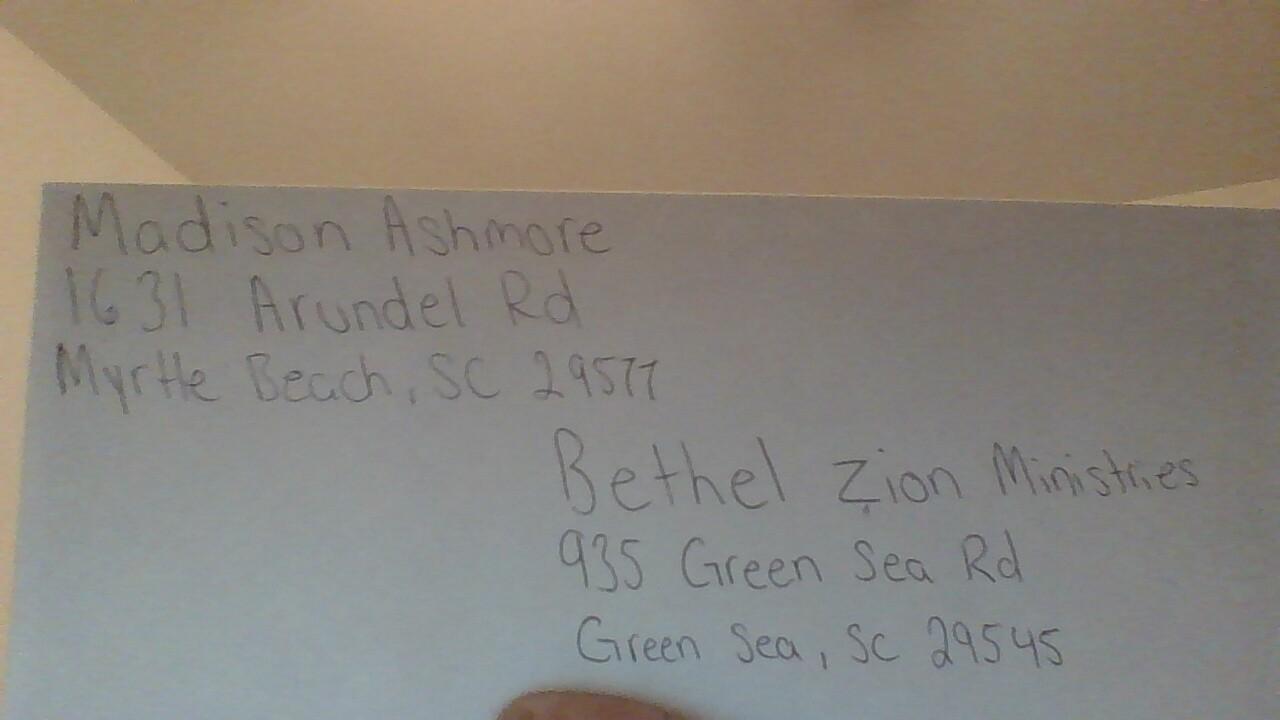 Madison Ashmore
1631 Arundel Rd
Myrtle Beach, SC 29577
Bethel Zion Ministries
935 Green Sea Rd
Green Sea, SC 29545